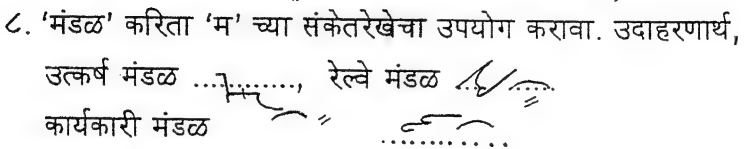 ८. 'मंडळ' करिता 'म' च्या संकेतरेखेचा उपयोग करावा. उदाहरणार्थ,
उत्कर्ष मंडळ ............, रेल्वे मंडळ ............
कार्यकारी मंडळ ............